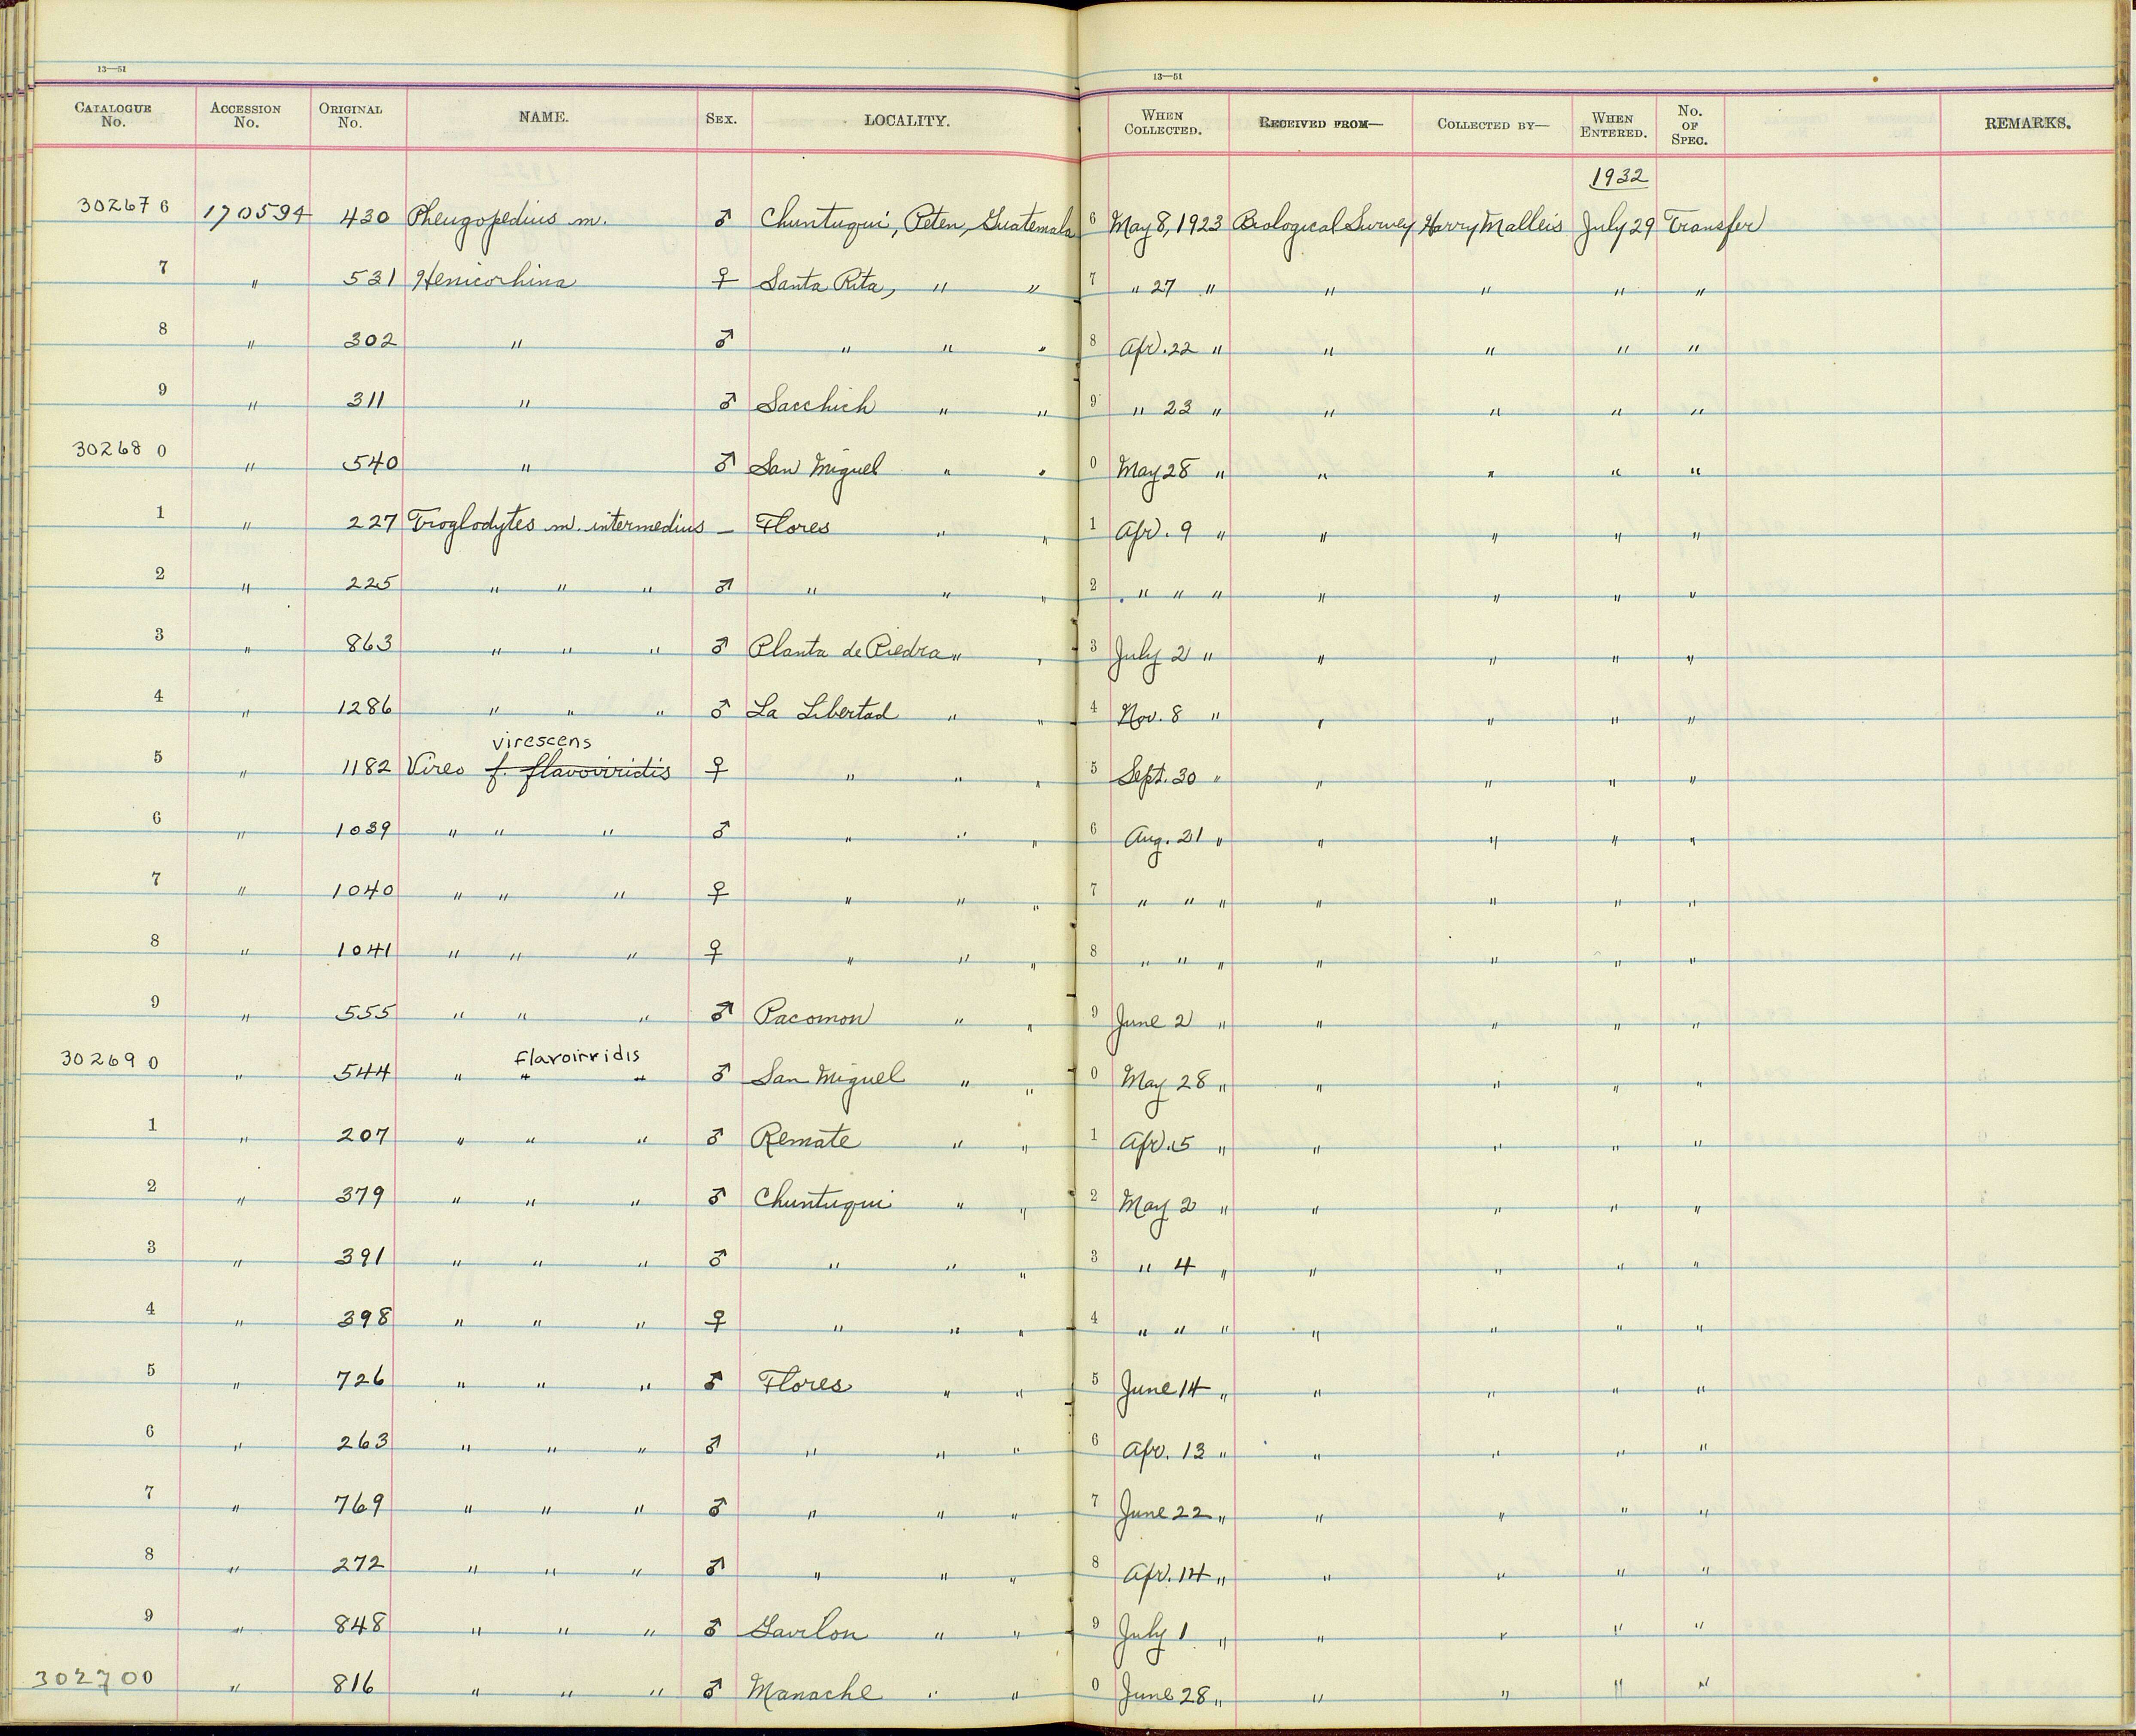 13—51 13—51
CATALOGUE No. ACCESSION No. ORIGINAL No. NAME. SEX. LOCALITY. WHEN COLLECTED. RECEIVED FROM— COLLECTED BY— WHEN ENTERED. No. OF SPEC. REMARKS.
1932
302676 170594 430 Pheugopedius m. ♂ Chuntuqui, Peten, Guatemala 6 May 8, 1923 Biological Survey Harry Malleis July 29 Transfer
7 " 531 Henicorhina ♀ Santa Rita, " " 7 " 27 " " " " "
8 " 302 " ♂ " " " 8 Apr. 22 " " " " "
9 " 311 " ♂ Sacchich " " 9 " 23 " " " " "
302680 " 540 " ♂ San Miguel " " 0 May 28 " " " " "
1 " 227 Troglodytes m. intermedius — Flores " " 1 Apr. 9 " " " " "
2 " 225 " " " ♂ " " " 2 " " " " " " "
3 " 863 " " " ♂ Planta de Piedra " " 3 July 2 " " " " "
4 " 1286 " " " ♂ La Libertad " " 4 Nov. 8 " " " " "
virescens
5 " 1182 Vireo f. flavoviridis ♀ " " " 5 Sept. 30 " " " " "
6 " 1039 " " " ♂ " " " 6 Aug. 21 " " " " "
7 " 1040 " " " ♀ " " " 7 " " " " " " "
8 " 1041 " " " ♀ " " " 8 " " " " " " "
9 " 555 " " " ♂ Pacomon " " 9 June 2 " " " " "
flavoirridis
302690 " 544 " " " ♂ San Miguel " " 0 May 28 " " " " "
1 " 207 " " " ♂ Remate " " 1 Apr. 5 " " " " "
2 " 379 " " " ♂ Chuntuqui " " 2 May 2 " " " " "
3 " 391 " " " ♂ " " " 3 " 4 " " " " "
4 " 398 " " " ♀ " " " 4 " " " " " " "
5 " 726 " " " ♂ Flores " " 5 June 14 " " " " "
6 " 263 " " " ♂ " " " 6 Apr. 13 " " " " "
7 " 769 " " " ♂ " " " 7 June 22 " " " " "
8 " 272 " " " ♂ " " " 8 Apr. 14 " " " " "
9 " 848 " " " ♂ Gavilon " " 9 July 1 " " " " "
302700 " 816 " " " ♂ Manache " " 0 June 28 " " " " "